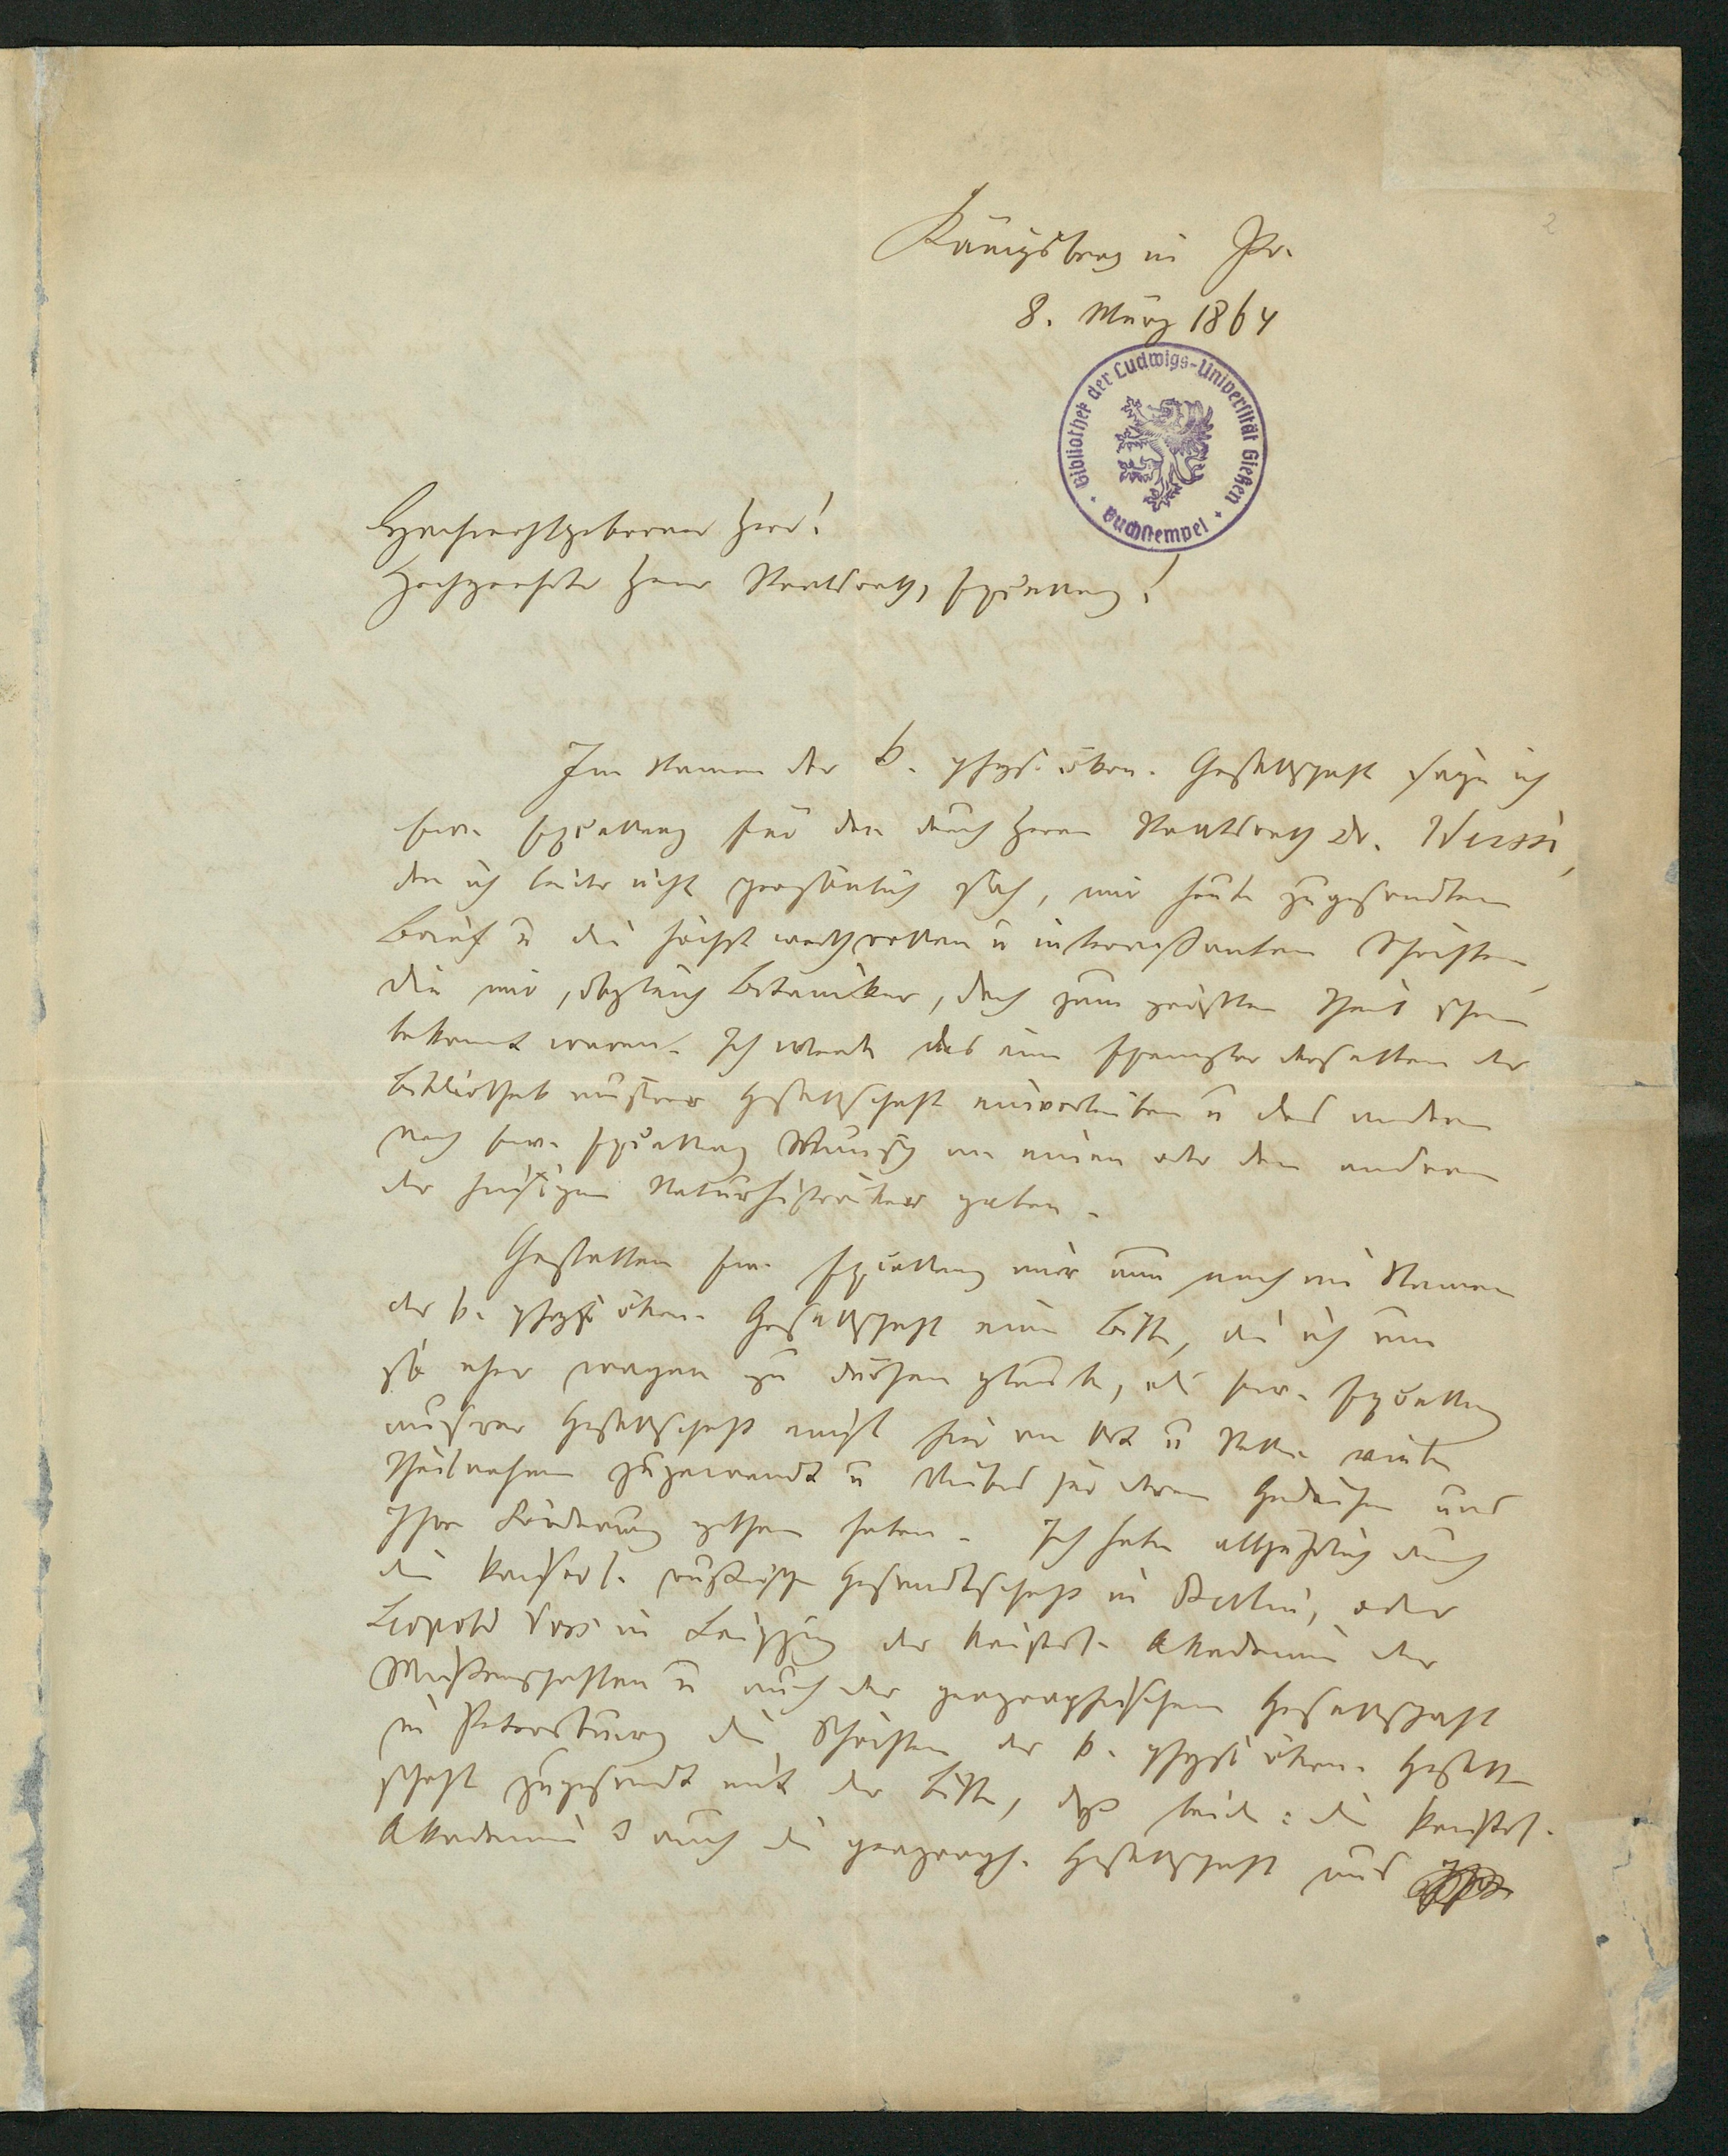 2
Königsberg in Pr.
8. März 1864
Bibliothek der Ludwigs-Universität Gießen
Buchstempel
Hochwohlgeborner Herr!
Hochgeehrter Herr Staatsrath, Excellenz!
Im Namen der k. physi. ökon. Gesellschaft sage ich
Ew. Excellenz für den durch Herrn Staatsrath Dr. Weisse,
den ich leider nicht persönlich sah, mir heute zugesendten
Brief u die höchst werthvollen u interessanten Schriften,
die mir, obgleich Botaniker, doch zum größten Theil schon
bekannt waren. Ich werde das eine Exemplar derselben der
Bibliothek unsrer Gesellschaft einverleiben u das andere
nach Ew. Excellenz Wunsch an einen oder den andern
der hiesigen Naturhistoriker geben.
Gestatten Ew. Excellenz mir nun noch im Namen
der k. physi ökon. Gesellschaft eine Bitte, die ich um
so eher wagen zu dürfen glaube, als Ew. Excellenz
unsrer Gesellschaft einst hier an Ort u Stelle viele
Theilnahme zugewandt u Vieles für deren Gedeihen und
Ihre Förderung gethan haben. Ich habe alljährlich durch
die kaiserl. russische Gesandtschaft in Berlin, oder
Leopold Voss in Leipzig der kaiserl. Akademie der
Wissenschaften u auch der geographischen Gesellschaft
in Petersburg die Schriften der k. physi ökon. Gesell-
schaft zugesendt mit der Bitte, daß beide: die kaiserl.
Akademie u auch die geograph. Gesellschaft uns